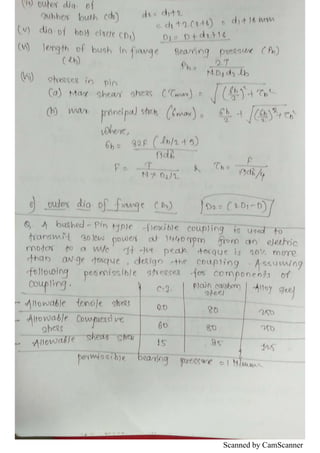 (iv) outer dia of
rubber bush (dr) dr = d1+2
= d1+2(2×6) = d1+16 mm
(v) dia of bolt circle (D1) D1 = D+dr+16
(vi) length of bush in flange Bearing pressure (Pb)
(lb) Pb = 2T / N D1 dr lb
(vii) stresses in pin
(a) Max shear stress (τmax) = √((σb/2)² + τb²
(b) max principal stress (σmax) = σb/2 + √((σb/2)² + τb²
where,
σb = 32F (lb/2 + 5) / πdb³
F = T / N × D1/2 & τb = F / πdb²/4
c) outer dia of flange (D2) D2 = (2D1-D)
Q. A bushed-Pin type flexible coupling is used to
transmit 30kw power at 1440rpm from an electric
motor to a m/c. If the peak torque is 20% more
than avge torque, design the coupling. Assuming
following permissible stresses for components of
coupling.
C.I. Plain carbon steel Alloy steel
Allowable tensile stress 20 80 250
Allowable Compressive stress 60 80 250
Allowable shear stress 15 125
permissible bearing pressure = 1
Scanned by CamScanner